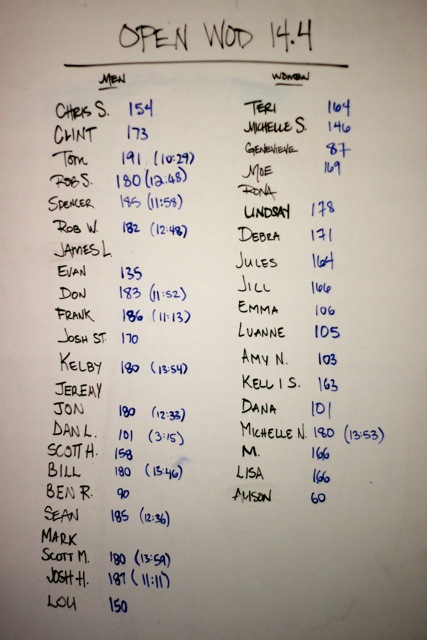 OPEN WOD 14.4
MEN
CHRIS S. 154
CLINT 173
TOM 191 (10:29)
ROB S. 180 (12:48)
SPENCER 185 (11:58)
ROB W. 182 (12:48)
JAMES L.
EVAN 135
DON 183 (11:52)
FRANK 186 (11:13)
JOSH ST. 170
KELBY 180 (13:54)
JEREMY
JON 180 (12:33)
DAN L. 101 (3:15)
SCOTT H. 158
BILL 180 (13:46)
BEN R. 90
SEAN 185 (12:36)
MARK
SCOTT M. 180 (13:59)
JOSH H. 187 (11:11)
LOU 150
WOMEN
TERI 164
MICHELLE S. 146
GENEVIEVE 87
MOE 169
RONA
LINDSAY 178
DEBRA 171
JULES 164
JILL 166
EMMA 106
LUANNE 105
AMY N. 103
KELLI S. 163
DANA 101
MICHELLE N. 180 (13:53)
M. 166
LISA 166
ALISON 60